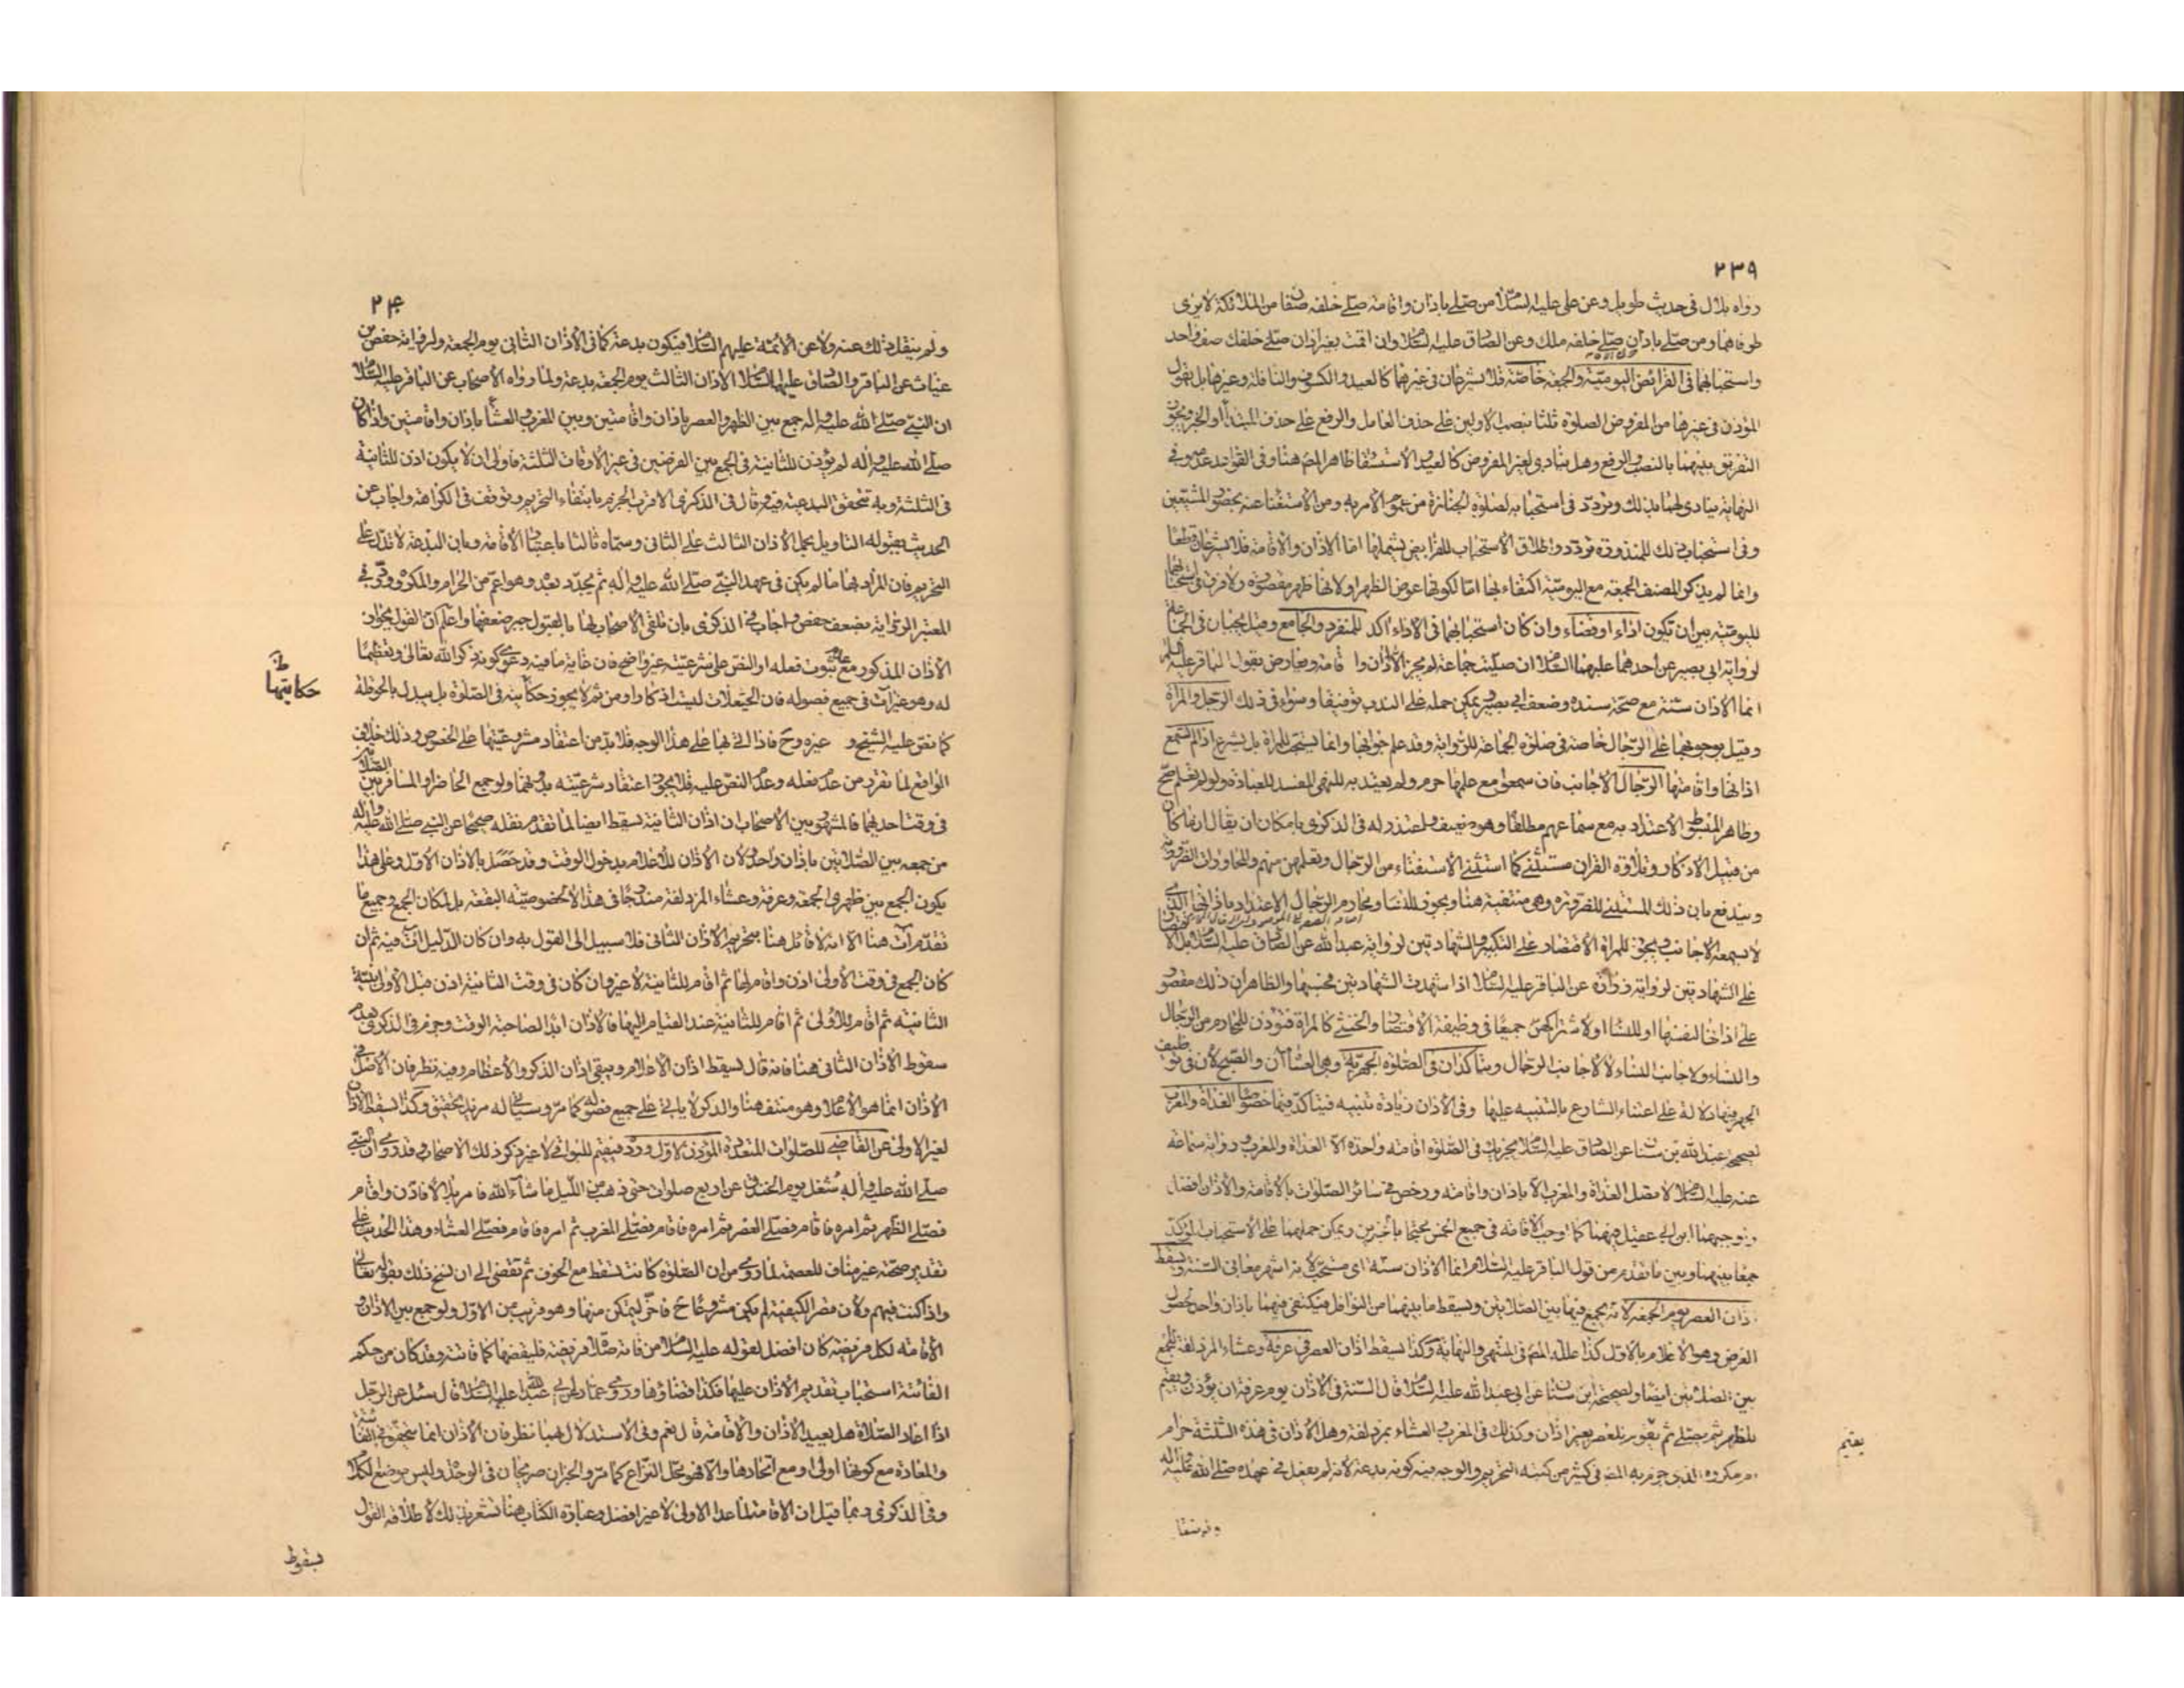 ٢٣٩
رواه بلال في حديث طويل وعن علي عليه السلام من صلى باذان واقامة صلى خلفه صف من الملائكة لا يرى
طرفاهما ومن صلى باذان صلى خلفه ملك وعن الصادق عليه السلام وان اقمت بغير اذان صلى خلفك صف واحد
واستحبابهما في الفرائض اليومية والجمعة خاصة فلا يشرعان في غيرهما كالعيد والكسوف والنافلة وغيرها بل يقول
المؤذن في غيرها من المفروض الصلوة ثلثا بنصب الاولين على حذف العامل والرفع على حذف المبتدا او الخبر ويجوز
التفريق بينهما بالنصب والرفع وهل ينادى لغير المفروض كالعيد والاستسقا ظاهر المص هنا وفي القواعد عدمه وفي
النهاية ينادى لهما بذلك وتردد في استحبابه لصلوة الجنازة من عموم الامر به ومن الاستغناء عنه بحضور المشيعين
وفي استحباب ذلك للمنذورة تردد واطلاق الاستحباب للفرايض يشملها اما الاذان والاقامة فلا يشرعان قطعا
وانما لم يذكر المصنف الجمعة مع اليومية اكتفاء بها اما لكونها عوض الظهر او لانها ظهر مقصورة ولا فرق في استحبابهما
لليومية بين ان تكون اداء او قضاء وان كان استحبابهما في الاداء اكد للمنفرد والجامع وقيل يجبان في الجماعة
لرواية ابي بصير عن احدهما عليهما السلام ان صليت جماعة لم يجز الا اذان واقامة ويعارض بقول الباقر عليه السلام
انما الاذان سنة مع صحة سنده وضعف ابي بصير يمكن حمله على الندب توفيقا وسواء في ذلك الرجل والمراة
وقيل بوجوبهما على الرجال خاصة في صلوة الجماعة للرواية وقد علم جوابها وانما يستحب للمراة بل يشرع اذا لم تسمع
اذانها واقامتها الرجال الاجانب فان سمعوه مع علمها حرم ولم يعتد به للنهي المفسد للعبادة ولو لم تعلم صح
وظاهر المبسوط الاعتداد به مع سماعهم مطلقا وهو ضعيف واعتذر له في الذكرى بامكان ان يقال ان ما كان
من قبيل الاذكار وتلاوة القران مستثنى كما استثنى الاستفتاء من الرجال وتعلمهن منهم والمحاورات الضرورية
ويندفع بان ذلك المستثنى للضرورة وهي منتفية هنا ويجوز للنساء ومحارم الرجال الاعتداد باذانها الذي
لا يسمعه الاجانب ويجوز للمراة الاقتصار على التكبير والشهادتين لرواية عبدالله عن الصادق عليه السلام بل
على الشهادتين لرواية زرارة عن الباقر عليه السلام اذا شهدت الشهادتين فحسبها والظاهر ان ذلك مقصور
على اذانها لنفسها او للنساء او لاشتراكهن جميعا في وظيفة الاقتصار والخنثى كالمراة فتؤذن للمحارم من الرجال
والنساء ولاجانب النساء لا لاجانب الرجال ويتاكدان في الصلوة الجهرية وهي العشاآن والصبح لان في توظيف
الجهر فيها دلالة على اعتناء الشارع بالتنبيه عليها وفي الاذان زيادة تنبيه فيتاكد فيها خصوصا الغداة والمغرب
لصحيح عبدالله بن سنان عن الصادق عليه السلام يجزيك في الصلوة اقامة واحدة الا الغداة والمغرب ورواية سماعة
عنه عليه السلام لا تصل الغداة والمغرب الا باذان واقامة ورخص في سائر الصلوات بالاقامة والاذان افضل
واوجبهما ابن ابي عقيل فيهما كما اوجب الاقامة في جميع الخمس محتجا بالخبرين ويمكن حملهما على الاستحباب المؤكد
جمعا بينهما وبين ما تقدم من قول الباقر عليه السلام انما الاذان سنة اي مستحب لانه اشهر معاني السنة ويسقط
اذان العصر يوم الجمعة لانه يجمع فيها بين الصلاتين ويسقط ما بينهما من النوافل فيكتفى فيهما باذان واحد لحصول
الغرض وهو الاعلام بالاول كذا علله المص في المنتهى والنهاية وكذا يسقط اذان العصر في عرفة وعشاء المزدلفة للجمع
بين الصلاتين ايضا ولصحيحة ابن سنان عن ابي عبدالله عليه السلام قال السنة في الاذان يوم عرفة ان يؤذن ويقيم
للظهر ثم يصلي ثم يقوم للعصر بغير اذان وكذلك في المغرب والعشاء بمزدلفة وهل الاذان في هذه الثلثة حرام
ام مكروه الذي جزم به المص في كثير من كتبه التحريم والوجه فيه كونه بدعة لانه لم يفعل في عهده صلى الله عليه واله
يقيم
٢٤٠
ولم ينقل ذلك عنه ولا عن الائمة عليهم السلام فيكون بدعة كما في الاذان الثاني يوم الجمعة ولرواية حفص بن
غياث عن الباقر والصادق عليهما السلام الاذان الثالث يوم الجمعة بدعة ولما رواه الاصحاب عن الباقر عليه السلام
ان النبي صلى الله عليه واله جمع بين الظهر والعصر باذان واقامتين وبين المغرب والعشاء باذان واقامتين واذا كان
صلى الله عليه واله لم يؤذن للثانية في الجمع بين الفرضين في غير الاوقات الثلثة فاولى ان لا يكون اذن للثانية
في الثلثة وبه تتحقق البدعية فيه وقال في الذكرى الاقرب الجزم بانتفاء التحريم وتوقف في الكراهة واجاب عن
الحديث بقبوله التاويل بحمل الاذان الثالث على الثاني وسماه ثالثا باعتبار الاقامة وبان البدعة لا تدل على
التحريم فان المراد بها ما لم يكن في عهد النبي صلى الله عليه واله ثم تجدد بعده وهو اعم من الحرام والمكروه وقدح في
المعتبر الرواية بضعف حفص واجاب في الذكرى بان تلقي الاصحاب لها بالقبول جبر ضعفها واعلم ان القول بجواز
الاذان المذكور مع عدم ثبوت فعله او النص على شرعيته غير واضح فان غاية ما فيه دعوى كونه ذكر الله تعالى وتعظيما
له وهو غير آت في جميع فصوله فان الحيعلات ليست اذكارا ومن ثم لا يجوز حكايته في الصلوة بل يبدل بالحوقلة
حكايتها
كما نص عليه الشيخ وغيره وح فاذا اتى بها على هذا الوجه فلا بد من اعتقاد مشروعيتها على الخصوص وذلك خلاف
الواقع لما تقرر من عدم فعله وعدم النص عليه فلا يجوز اعتقاد شرعيته بدونهما ولو جمع الحاضر او المسافر بين الصلاتين
في وقت احدهما فالمشهور بين الاصحاب ان اذان الثانية يسقط ايضا لما تقدم نقله صحيحا عن النبي صلى الله عليه واله
من جمعه بين الصلاتين باذان واحد ولان الاذان للاعلام بدخول الوقت وقد حصل بالاذان الاول وعلى هذا
يكون الجمع بين ظهري الجمعة وعرفة وعشاء المزدلفة مندرجا في هذا لا لخصوصية البقعة بل لمكان الجمع وجميع ما
تقدم آت هنا الا انه لا قائل هنا بتحريم الاذان الثاني فلا سبيل الى القول به وان كان الدليل آت فيه ثم ان
كان الجمع في وقت الاولى اذن واقام لها ثم اقام للثانية لا غير وان كان في وقت الثانية اذن قبل الاولى بنية
الثانية ثم اقام للاولى ثم اقام للثانية عند القيام اليها فالاذان ابدا لصاحبة الوقت وجزم في الذكرى بعدم
سقوط الاذان الثاني هنا فانه قال يسقط اذان الاعلام ويبقى اذان الذكر والاعظام وفيه نظر فان الاصل في
الاذان انما هو الاعلام وهو منتف هنا والذكر لا ياتي على جميع فصوله كما مر وسياتي له مزيد تحقيق وكذا يسقط الاذان
لغير الاولى عن القاضي للصلوات المتعددة المؤذن لاول ورده فيقيم للبواقي لا غير ذكر ذلك الاصحاب وقد روي ان النبي
صلى الله عليه واله شغل يوم الخندق عن اربع صلوات حتى ذهب من الليل ما شاء الله فامر بلالا فاذن واقام
فصلى الظهر ثم امره فاقام فصلى العصر ثم امره فاقام فصلى المغرب ثم امره فاقام فصلى العشاء وهذا الحديث على
تقدير صحته غير مناف للعصمة لما روي من ان الصلوة كانت تسقط مع الخوف ثم تقضى الى ان نسخ ذلك بقوله تعالى
واذا كنت فيهم ولان قصر الكيفية لم يكن مشروعا ح فاخر ليتمكن منها وهو قريب من الاول ولو جمع بين الاذان و
الاقامة لكل فريضة كان افضل لقوله عليه السلام من فاتته صلاة فريضة فليقضها كما فاتته وقد كان من حكم
الفائتة استحباب تقديم الاذان عليها فكذا قضاؤها وروى عمار عن ابي عبدالله عليه السلام قال سئل عن الرجل
اذا اعاد الصلاة هل يعيد الاذان والاقامة قال نعم وفي الاستدلال بهما نظر فان الاذان انما يتحقق في الفائتة
والمعادة مع كونها اولى او مع اتحادها والا فهو محل النزاع كما مر والخبران صريحان في الوحدة وليس موضع الكلام
وفي الذكرى ربما قيل ان الاقامة لما عدا الاولى لا غير افضل وعبارة الكتاب هنا تشعر بذلك لاطلاقه القول
بسقوط